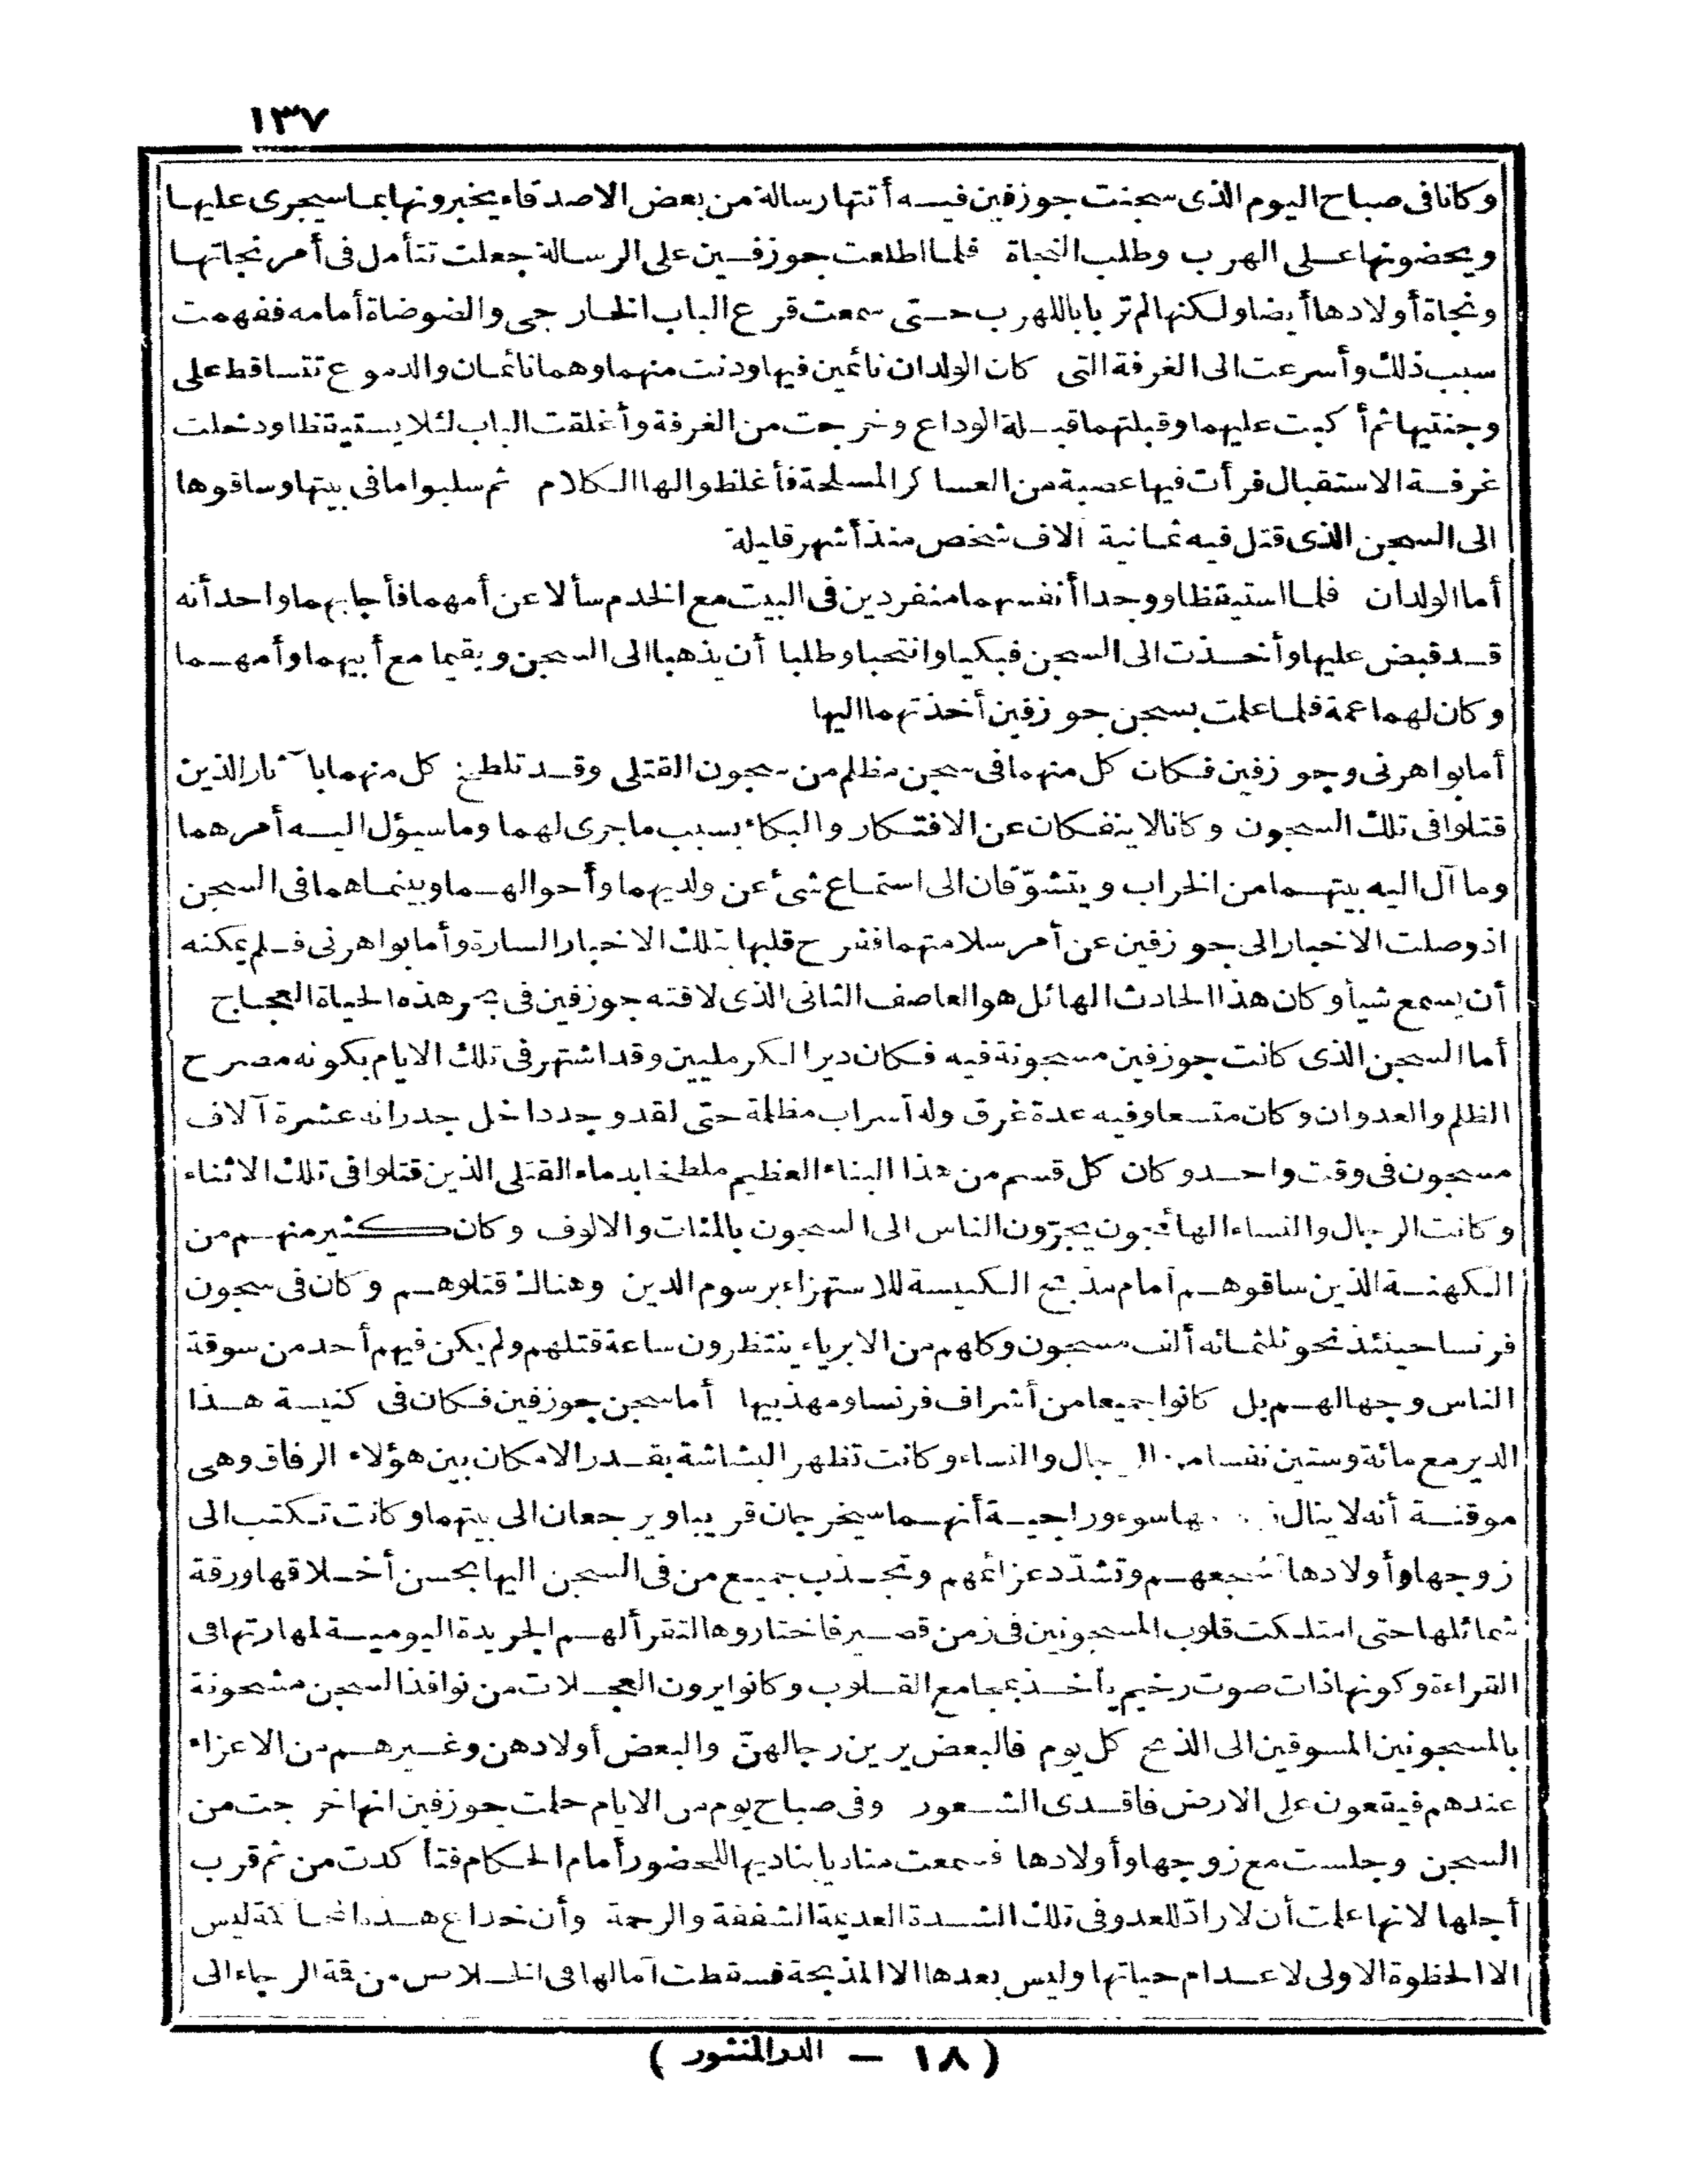 ١٣٧
وكانا فى صباح اليوم الذى سجنت جوزفين فيه أتتها رسالة من بعض الاصدقاء يخبرونها بما سيجرى عليها
ويحضونها على الهرب وطلب النجاة فلما اطلعت جوزفين على الرسالة جعلت تتأمل فى أمر نجاتها
ونجاة أولادها أيضا ولكنها لم تر بابا للهرب حتى سمعت قرع الباب الخارجى والضوضاة أمامه ففهمت
سبب ذلك وأسرعت الى الغرفة التى كان الولدان نائمين فيها ودنت منهما وهما نائمان والدموع تتساقط على
وجنتيها ثم أكبت عليهما وقبلتهما قبلة الوداع وخرجت من الغرفة وأغلقت الباب لئلا يستيقظا ودخلت
غرفة الاستقبال فرأت فيها عصبة من العساكر المسلحة فأغلظوا لها الكلام ثم سلبوا ما فى بيتها وساقوها
الى السجن الذى قتل فيه ثمانية آلاف شخص منذ أشهر قليلة
أما الولدان فلما استيقظا ووجدا أنفسهما منفردين فى البيت مع الخدم سألا عن أمهما فأجابهما واحد أنه
قد قبض عليها وأخذت الى السجن فبكيا وانتحبا وطلبا أن يذهبا الى السجن ويقيما مع أبيهما وأمهما
وكان لهما عمة فلما علمت بسجن جوزفين أخذتهما اليها
أما بواهرنى وجوزفين فكان كل منهما فى سجن مظلم من سجون القتلى وقد تلطخ كل منهما بآثار الذين
قتلوا فى تلك السجون وكانا لا ينفكان عن الافتكار والبكاء بسبب ما جرى لهما وما سيؤل اليه أمرهما
وما آل اليه بيتهما من الخراب ويتشوّقان الى استماع شئ عن ولديهما وأحوالهما وبينما هما فى السجن
اذ وصلت الاخبار الى جوزفين عن أمر سلامتهما ففرح قلبها بتلك الاخبار السارة وأما بواهرنى فلم يمكنه
أن يسمع شيأ وكان هذا الحادث الهائل هو العاصف الثانى الذى لاقته جوزفين فى بحر هذه الحياة العجاج
أما السجن الذى كانت جوزفين مسجونة فيه فكان دير الكرمليين وقد اشتهر فى تلك الايام بكونه مصرح
الظلم والعدوان وكان متسعا وفيه عدة غرق وله آسراب مظلمة حتى لقد وجد داخل جدرانه عشرة آلاف
مسجون فى وقت واحد وكان كل قسم من هذا البناء العظيم ملطخا بدماء القتلى الذين قتلوا فى تلك الاثناء
وكانت الرجال والنساء الهائجون يجرّون الناس الى السجون بالمئات والالوف وكان كثير منهم من
الكهنة الذين ساقوهم أمام مذبح الكنيسة للاستهزاء برسوم الدين وهناك قتلوهم وكان فى سجون
فرنسا حينئذ نحو ثلثمائه ألف مسجون وكلهم من الابرياء ينتظرون ساعة قتلهم ولم يكن فيهم أحد من سوقة
الناس وجهالهم بل كانوا جميعا من أشراف فرنسا ومهذبيها أما سجن جوزفين فكان فى كنيسة هذا
الدير مع مائة وستين نفسا من الرجال والنساء وكانت تظهر البشاشة بقدر الامكان بين هؤلاء الرفاق وهى
موقنة أنه لا ينال سوء وراجية أنهما سيخرجان قريبا ويرجعان الى بيتهما وكانت تكتب الى
زوجها وأولادها تشجعهم وتشدّد عزائمهم وتجذب جميع من فى السجن اليها بحسن أخلاقها ورقة
شمائلها حتى امتلكت قلوب المسجونين فى زمن قصير فاختاروها لتقرأ لهم الجريدة اليومية لمهارتها فى
القراءة وكونها ذات صوت رخيم يأخذ بمجامع القلوب وكانوا يرون العجلات من نوافذ السجن مشحونة
بالمسجونين المسوقين الى الذبح كل يوم فالبعض يرين رجالهنّ والبعض أولادهن وغيرهم من الاعزاء
عندهم فيقعون على الارض فاقدى الشعور وفى صباح يوم من الايام حلمت جوزفين انها خرجت من
السجن وجلست مع زوجها وأولادها فسمعت مناديا يناديها للحضور أمام الحكام فتأكدت من ثم قرب
أجلها لانها علمت أن لا رادّ للعدو فى تلك الشدة العديمة الشفقة والرحمة وأن خداع هذه المحاكمة ليس
الا الخطوة الاولى لاعدام حياتها وليس بعدها الا المذبحة فسقطت آمالها فى الخلاص من قمة الرجاء الى
( ١٨ – الدر المنثور )